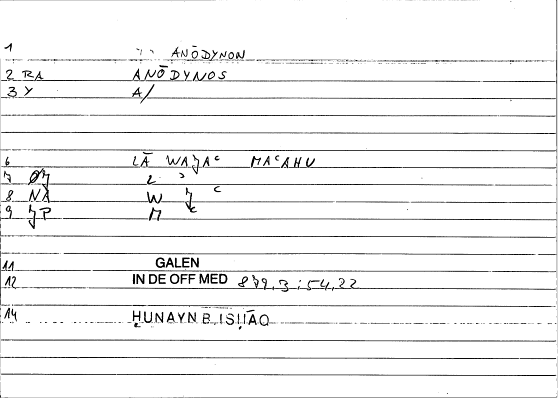 1 ANŌDYNON
2 RA ANŌDYNOS
3 Y A/
6 LĀ WAǦAᶜ MAᶜAHU
7
8 NA W Ǧ ᶜ
9 ǦP M ᶜ
11 GALEN
12 IN DE OFF MED 879,3 : 54,22
14 ḤUNAYN B. ISḤĀQ